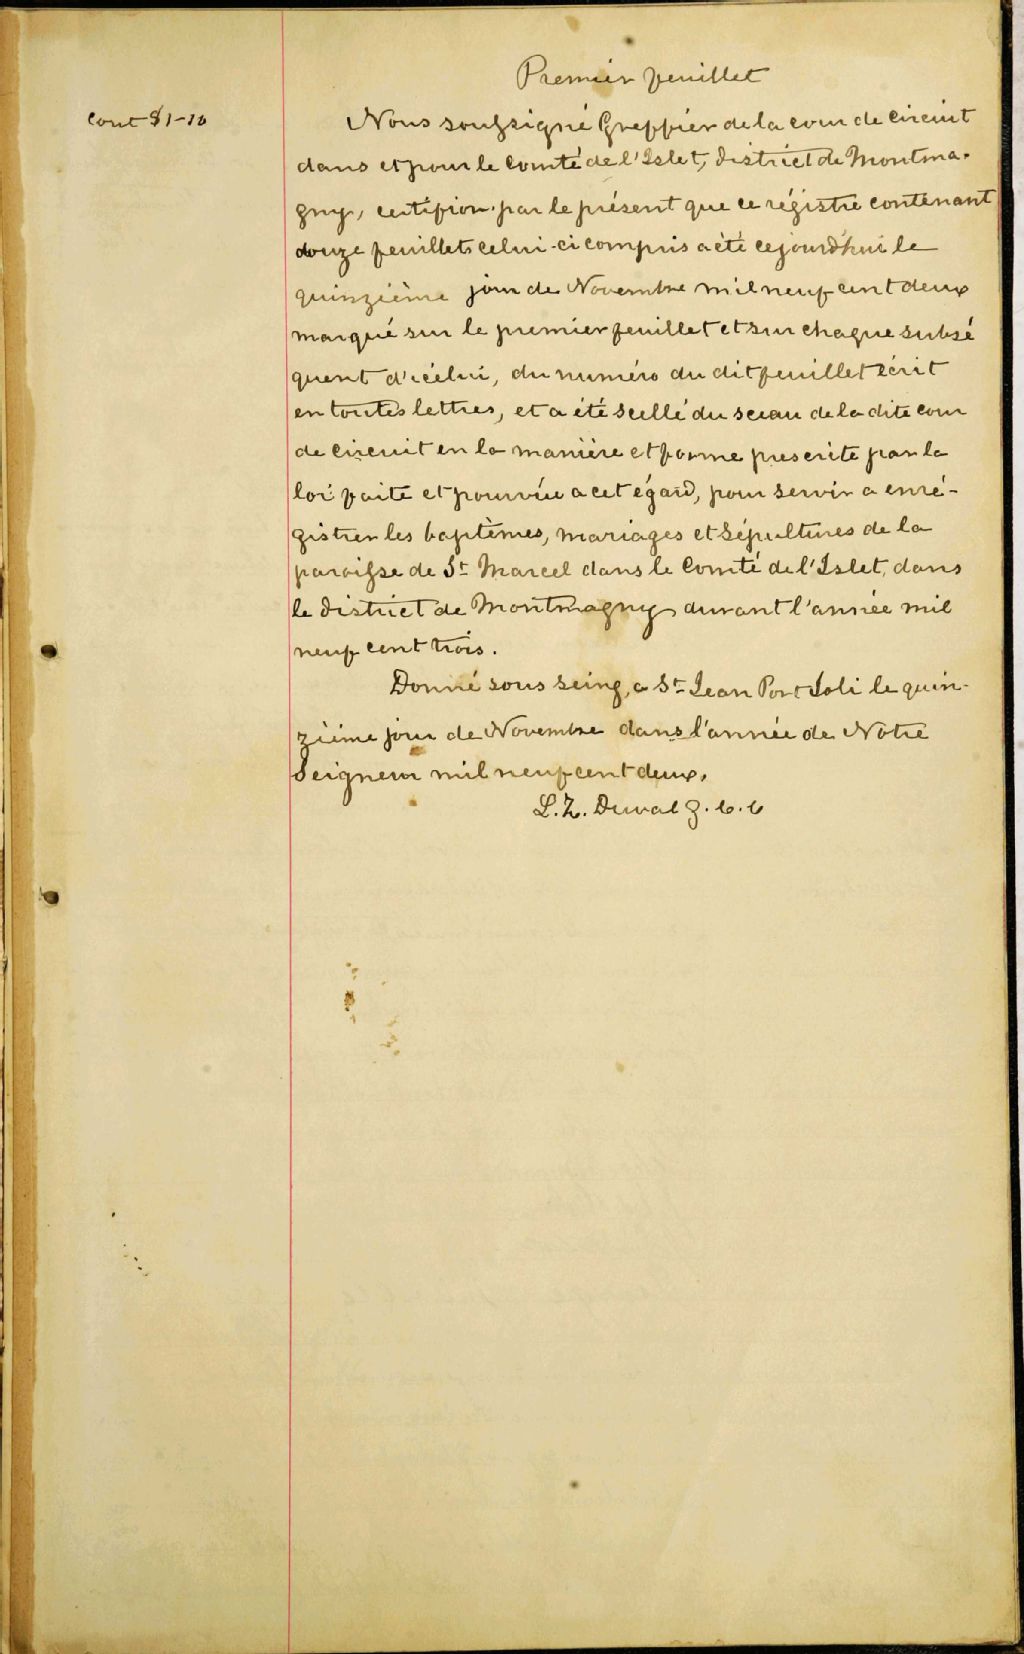 Premier feuillet
Cout $1-10
Nous soussigné Greffier de la cour de circuit
dans et pour le Comté de l'Islet, district de Montma-
gny, certifion par le présent que ce régistre contenant
douze feuillets celui-ci compris a été cejourd'hui le
quinzième jour de Novembre mil neuf cent deux
marqué sur le premier feuillet et sur chaque subsé
quent d'icélui, du numéro du dit feuillet écrit
en toutes lettres, et a été scellé du sceau de la dite cour
de circuit en la manière et forme prescrite par la
loi faite et pourvue a cet égard, pour servir a enré-
gistrer les baptêmes, mariages et Sépultures de la
paroisse de St Marcel dans le Comté de l'Islet, dans
le District de Montmagny durant l'année mil
neuf cent trois.
Donné sous seing, a St Jean Port Joli le quin-
zième jour de Novembre dans l'année de Notre
Seigneur mil neuf cent deux.
L. Z. Duval g. c. c